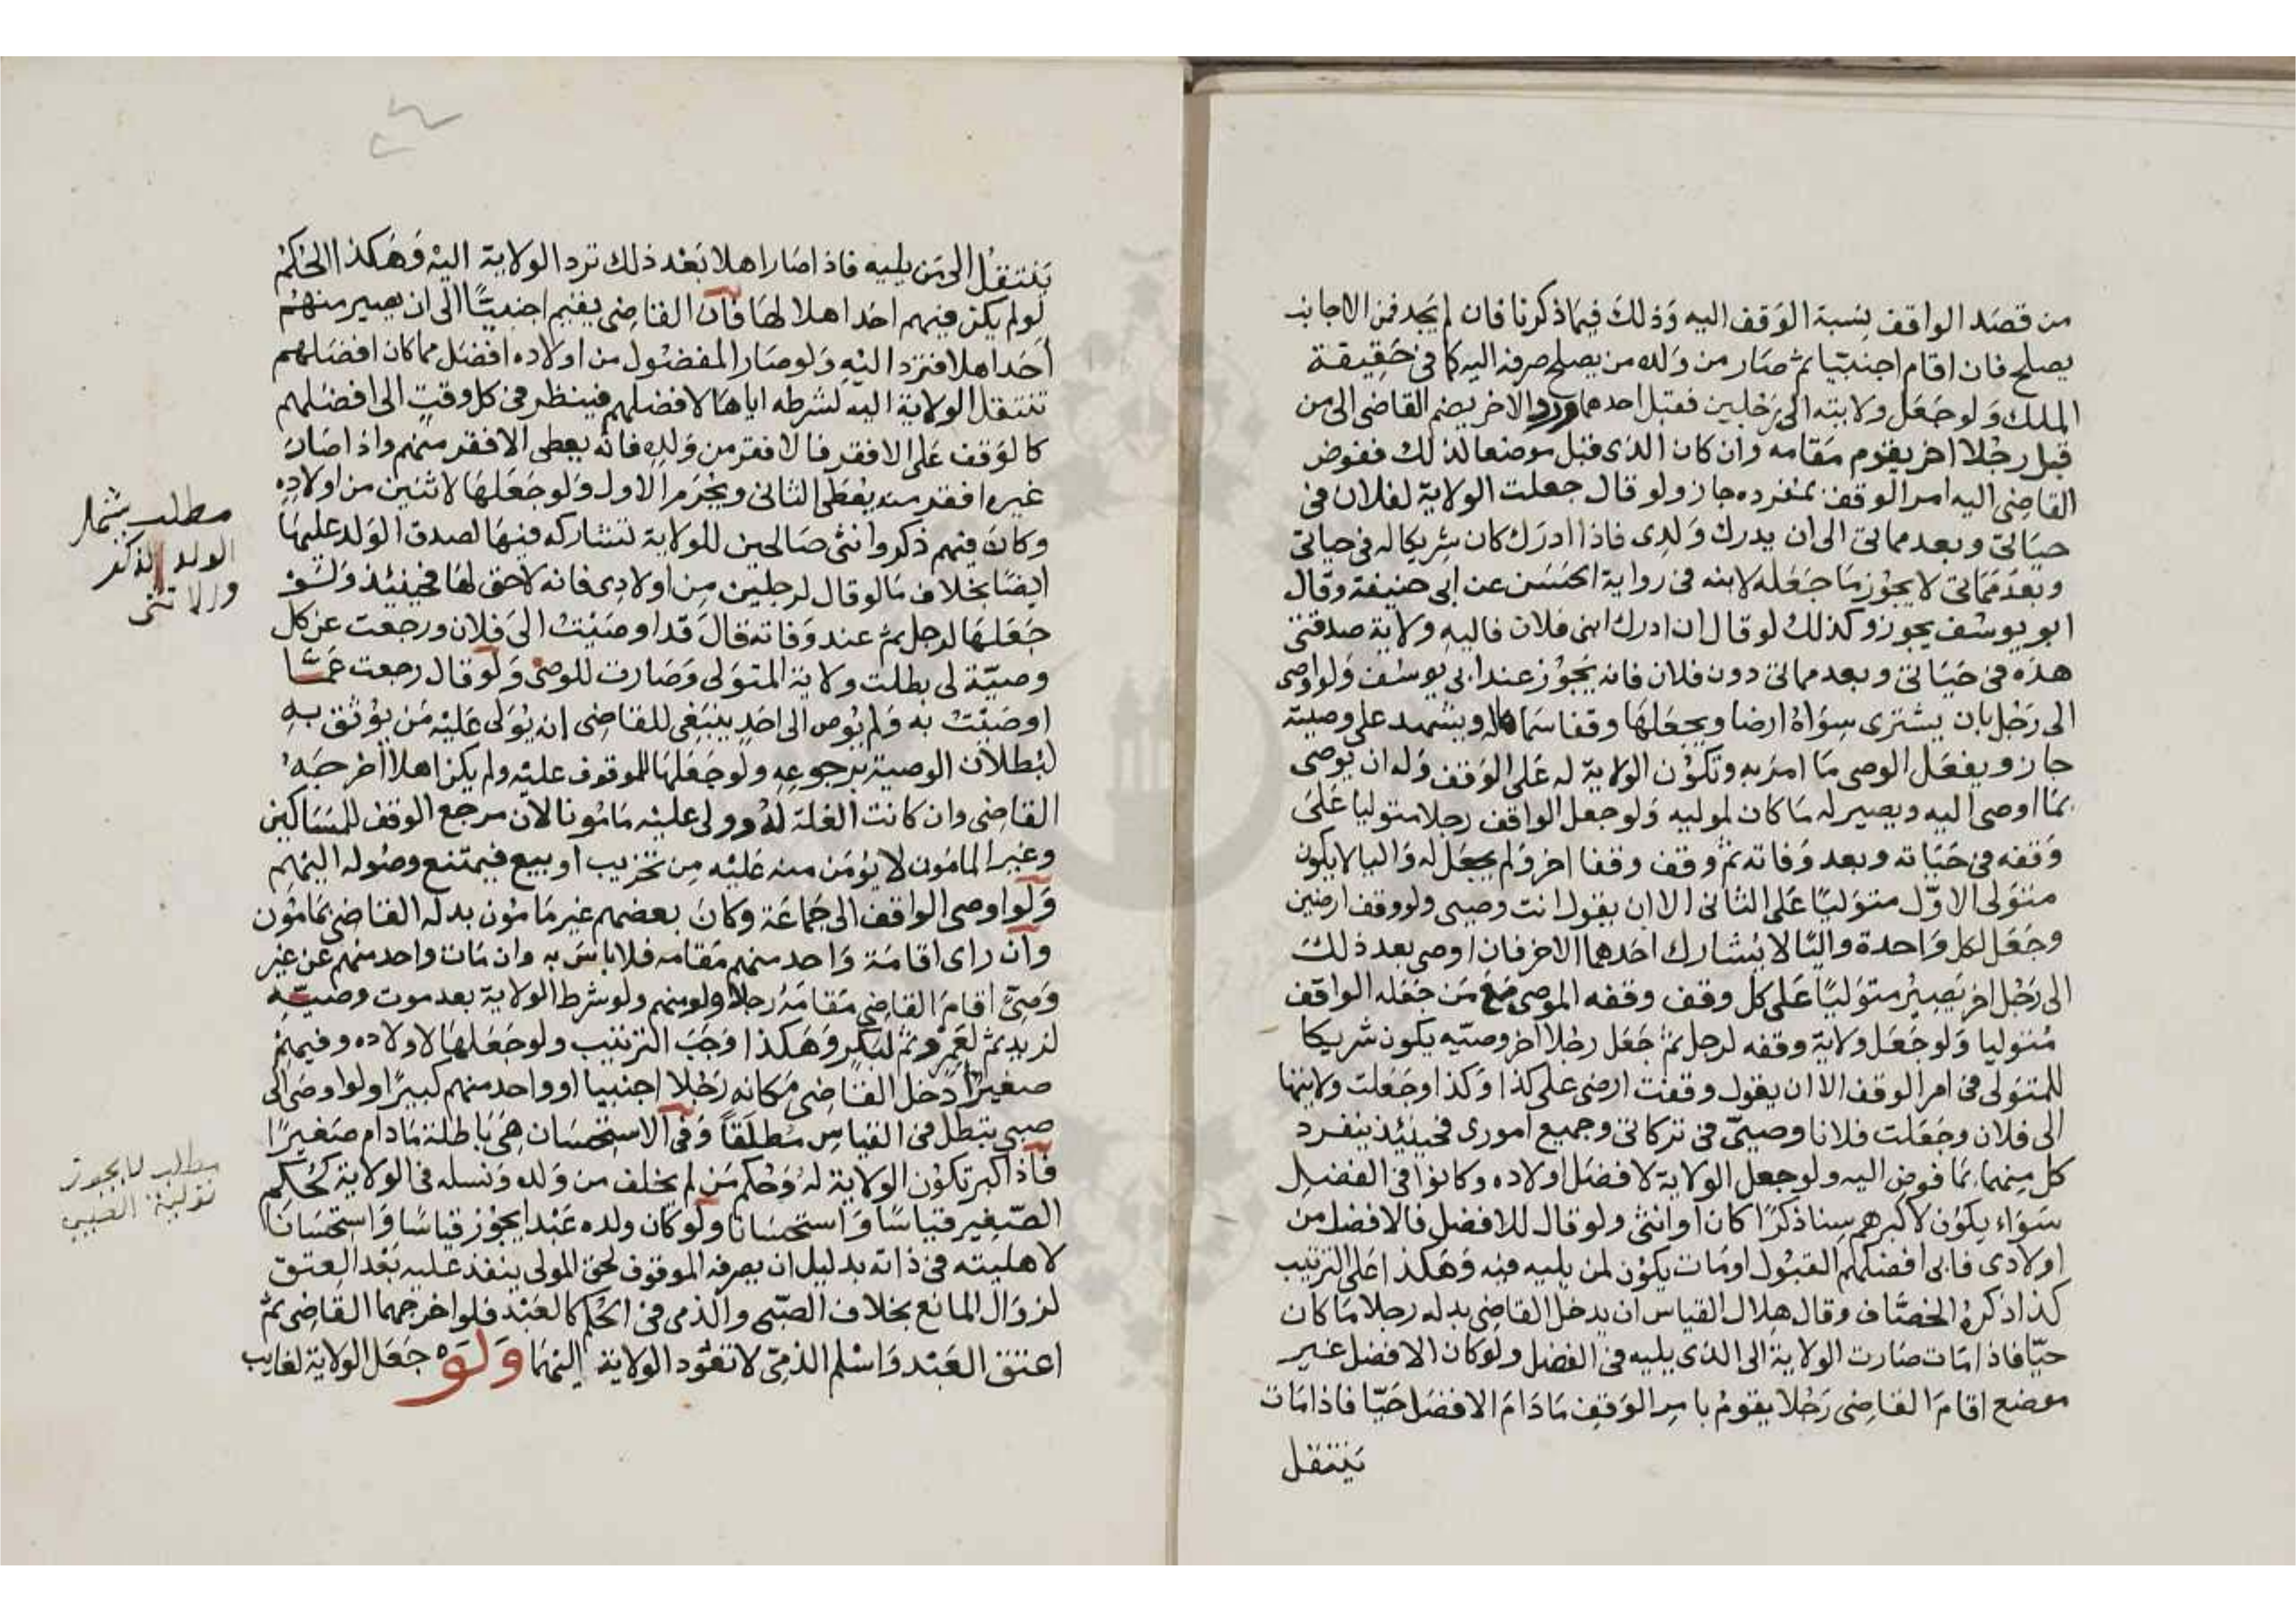 من قصد الواقف نسبة الوقف اليه وذلك فيما ذكرنا فان لم يجد فمن الاجانب
يصلح فان اقام اجنبيا ثم صار من ولده من يصلح صرفه اليه كما في حقيقة
الملك ولو جعل ولايته الى رجلين فقبل احدهما ورد الاخر يضم القاضى الى من
قبل رجلا اخر يقوم مقامه وان كان الذى قبل موضعا لذلك ففوض
القاضى اليه امر الوقف بمفرده جاز ولو قال جعلت الولاية لفلان فى
حياتى وبعد مماتى الى ان يدرك ولدى فاذا ادرك كان شريكا له فى حياتى
وبعد مماتى لا يجوز ما جعله لابنه فى رواية الحسن عن ابى حنيفة وقال
ابو يوسف يجوز وكذلك لو قال ان ادرك ابنى فلان فاليه ولاية صدقتى
هذه فى حياتى وبعد مماتى دون فلان فانه يجوز عند ابى يوسف ولو اوصى
الى رجل بان يشترى سواه ارضا ويجعلها وقفا سماه له ويشهد على وصيته
جاز ويفعل الوصى ما امر به وتكون الولاية له على الوقف وله ان يوصى
بما اوصى اليه ويصير له ما كان لموليه ولو جعل الواقف رجلا متوليا على
وقفه فى حياته وبعد وفاته ثم وقف وقفا اخر ولم يجعل له واليا لا يكون
متولى الاول متوليا على الثانى الا ان يقول انت وصيى ولو وقف ارضين
وجعل لكل واحدة واليا لا يشارك احدهما الاخر فان اوصى بعد ذلك
الى رجل اخر يصير متوليا على كل وقف وقفه الموصى مع من جعله الواقف
متوليا ولو جعل ولاية وقفه لرجل ثم جعل رجلا اخر وصيه يكون شريكا
للمتولى فى امر الوقف الا ان يقول وقفت ارضى على كذا وكذا وجعلت ولايتها
الى فلان وجعلت فلانا وصيى فى تركاتى وجميع امورى فحينئذ ينفرد
كل منهما بما فوض اليه ولو جعل الولاية لافضل اولاده وكانوا فى الفضل
سواء يكون لاكبرهم سنا ذكرا كان او انثى ولو قال للافضل فالافضل من
اولادى فابى افضلهم القبول او مات يكون لمن يليه فيه وهكذا على الترتيب
كذا ذكره الخصاف وقال هلال القياس ان يدخل القاضى بدله رجلا ما كان
حيا فاذا مات صارت الولاية الى الذى يليه فى الفضل ولو كان الافضل غير
موضع اقام القاضى رجلا يقوم بامر الوقف ما دام الافضل حيا فاذا مات
ينتقل
ينتقل الى من يليه فاذا صار اهلا بعد ذلك ترد الولاية اليه وهكذا الحكم
لو لم يكن فيهم احد اهلا لها فان القاضى يقيم اجنبيا الى ان يصير منهم
احد اهلا فترد اليه ولو صار المفضول من اولاده افضل مما كان افضلهم
تنتقل الولاية اليه لشرطه اياها لافضلهم فينظر فى كل وقت الى افضلهم
كالوقف على الافقر فالافقر من ولده فانه يعطى الافقر منهم واذا صار
غيره افقر منه يعطى الثانى ويحرم الاول ولو جعلها لاثنين من اولاده
وكان فيهم ذكر وانثى صالحين للولاية تشاركه فيها لصدق الولد عليها
ايضا بخلاف ما لو قال لرجلين من اولادى فانه لا حق لها فحينئذ ولو
جعلها لرجل ثم عند وفاته قال قد اوصيت الى فلان ورجعت عن كل
وصية لى بطلت ولاية المتولى وصارت للوصى ولو قال رجعت عما
اوصيت به ولم يوص الى احد ينبغى للقاضى ان يولى عليه من يوثق به
لبطلان الوصية برجوعه ولو جعلها للموقوف عليه ولم يكن اهلا اخرجه
القاضى وان كانت الغلة له وولى عليه مامونا لان مرجع الوقف للمساكين
وغير المامون لا يؤمن منه عليه من تخريب او بيع فيمتنع وصوله اليهم
ولو اوصى الواقف الى جماعة وكان بعضهم غير مامون بدله القاضى بمامون
وان راى اقامة واحد منهم مقامه فلا باس به وان مات واحد منهم عن غير
وصى اقام القاضى مقامه رجلا ولو منهم ولو شرط الولاية بعد موت وصيه
لزيد ثم لعمرو ثم لبكر وهكذا وجب الترتيب ولو جعلها لاولاده وفيهم
صغير ادخل القاضى مكانه رجلا اجنبيا او واحد منهم كبيرا ولو اوصى الى
صبى يبطل فى القياس مطلقا وفى الاستحسان هى باطلة ما دام صغيرا
فاذا كبر تكون الولاية له وحكم من لم يخلف من ولده ونسله فى الولاية كحكم
الصغير قياسا واستحسانا ولو كان ولده عبدا يجوز قياسا واستحسانا
لاهليته فى ذاته بدليل ان تصرفه الموقوف لحق المولى ينفذ عليه بعد العتق
لزوال المانع بخلاف الصبى والذمى فى الحكم كالعبد فلو اخرجهما القاضى ثم
اعتق العبد واسلم الذمى لا تعود الولاية اليهما ولو جعل الولاية لغايب
مطلب يشمل
الولد الذكر
والانثى
مطلب لا يجوز
تولية الصبى